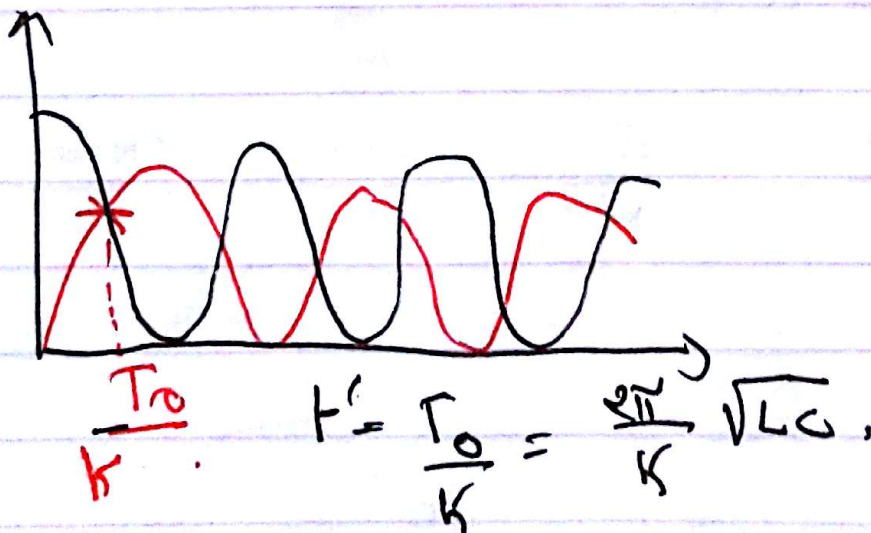 T₀/K . t' = T₀/K = 2π/K √LC .